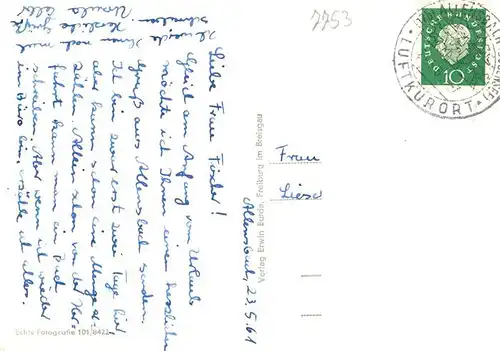 7753
Allensbach, 23.5.61
Liebe Frau Fischer!
Gleich am Anfang vom Urlaub
möchte ich Ihnen einen herzlichen
Gruß aus Allensbach senden.
Ich bin zwar erst zwei Tage hier
aber kann schon eine Menge er-
zählen. Allein schon von der Her-
fahrt kann man ein Buch
schreiben. Aber wenn ich wieder
im Büro bin, erzähle ich alles.
Ich werde Ihnen noch mal
schreiben. Herzliche Grüße
Ursula
Frau
Liesel
Verlag Erwin Burda, Freiburg im Breisgau
Echte Fotografie 101/8422
DEUTSCHE BUNDESPOST
10
LUFTKURORT